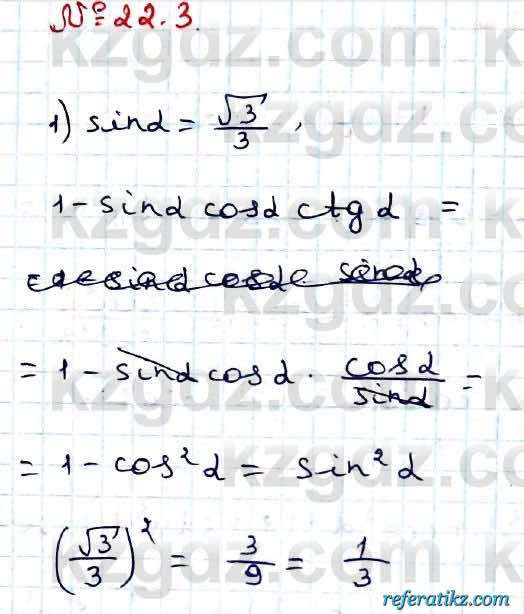 № 22.3.
1) sin α = √3/3,
1 - sin α cos α ctg α =
= 1 - sin α cos α · cos α/sin α =
= 1 - cos² α = sin² α
(√3/3)² = 3/9 = 1/3
kzgdz.com
referatikz.com